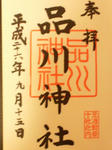 奉拝
品川神社
平成二十六年九月十五日
品川神社